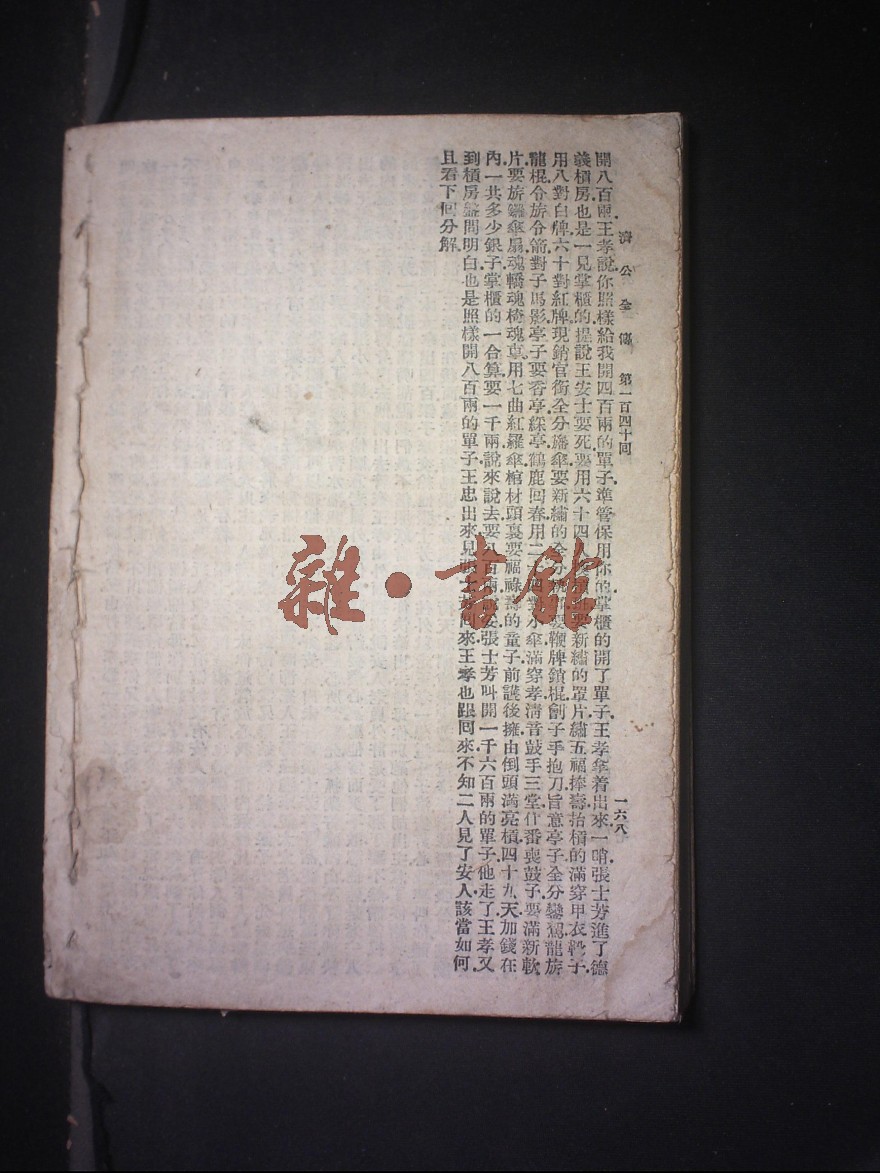 濟公全傳 第一百四十回 一六八
開八百兩王孝說你照樣給我開四百兩的單子準管保用你的掌櫃的開了單子王孝拿着出來一哨張士芳進了德
義槓房也是一見掌櫃的提說王安士要死要用六十四新繡的罩片繡五福捧壽抬槓的滿穿甲衣靴子
用八對白牌六十對紅牌現銷官銜全分旛傘要新繡的全要鞭牌鎖棍劊子手抱刀旨意亭子全分鑾駕龍旂
龍棍令旂令箭對子馬影亭子要香亭綵亭鶴鹿回春用二十對小傘滿穿孝清音鼓手三堂什番喪鼓子要滿新軟
片要旂鑼傘扇魂轎魂椅魂車用七曲紅羅傘棺材頭裏要福祿壽的童子前護後擁由倒頭滿亮槓四十九天加錢在
內一共多少銀子掌櫃的一合算要一千兩說來說去要八百兩說妥張士芳叫開一千六百兩的單子他走了王孝又
到槓房盤問明白也是照樣開八百兩的單子王忠出來見張士芳回來王孝也跟回來不知二人見了安人該當如何
且看下回分解
雜·書館